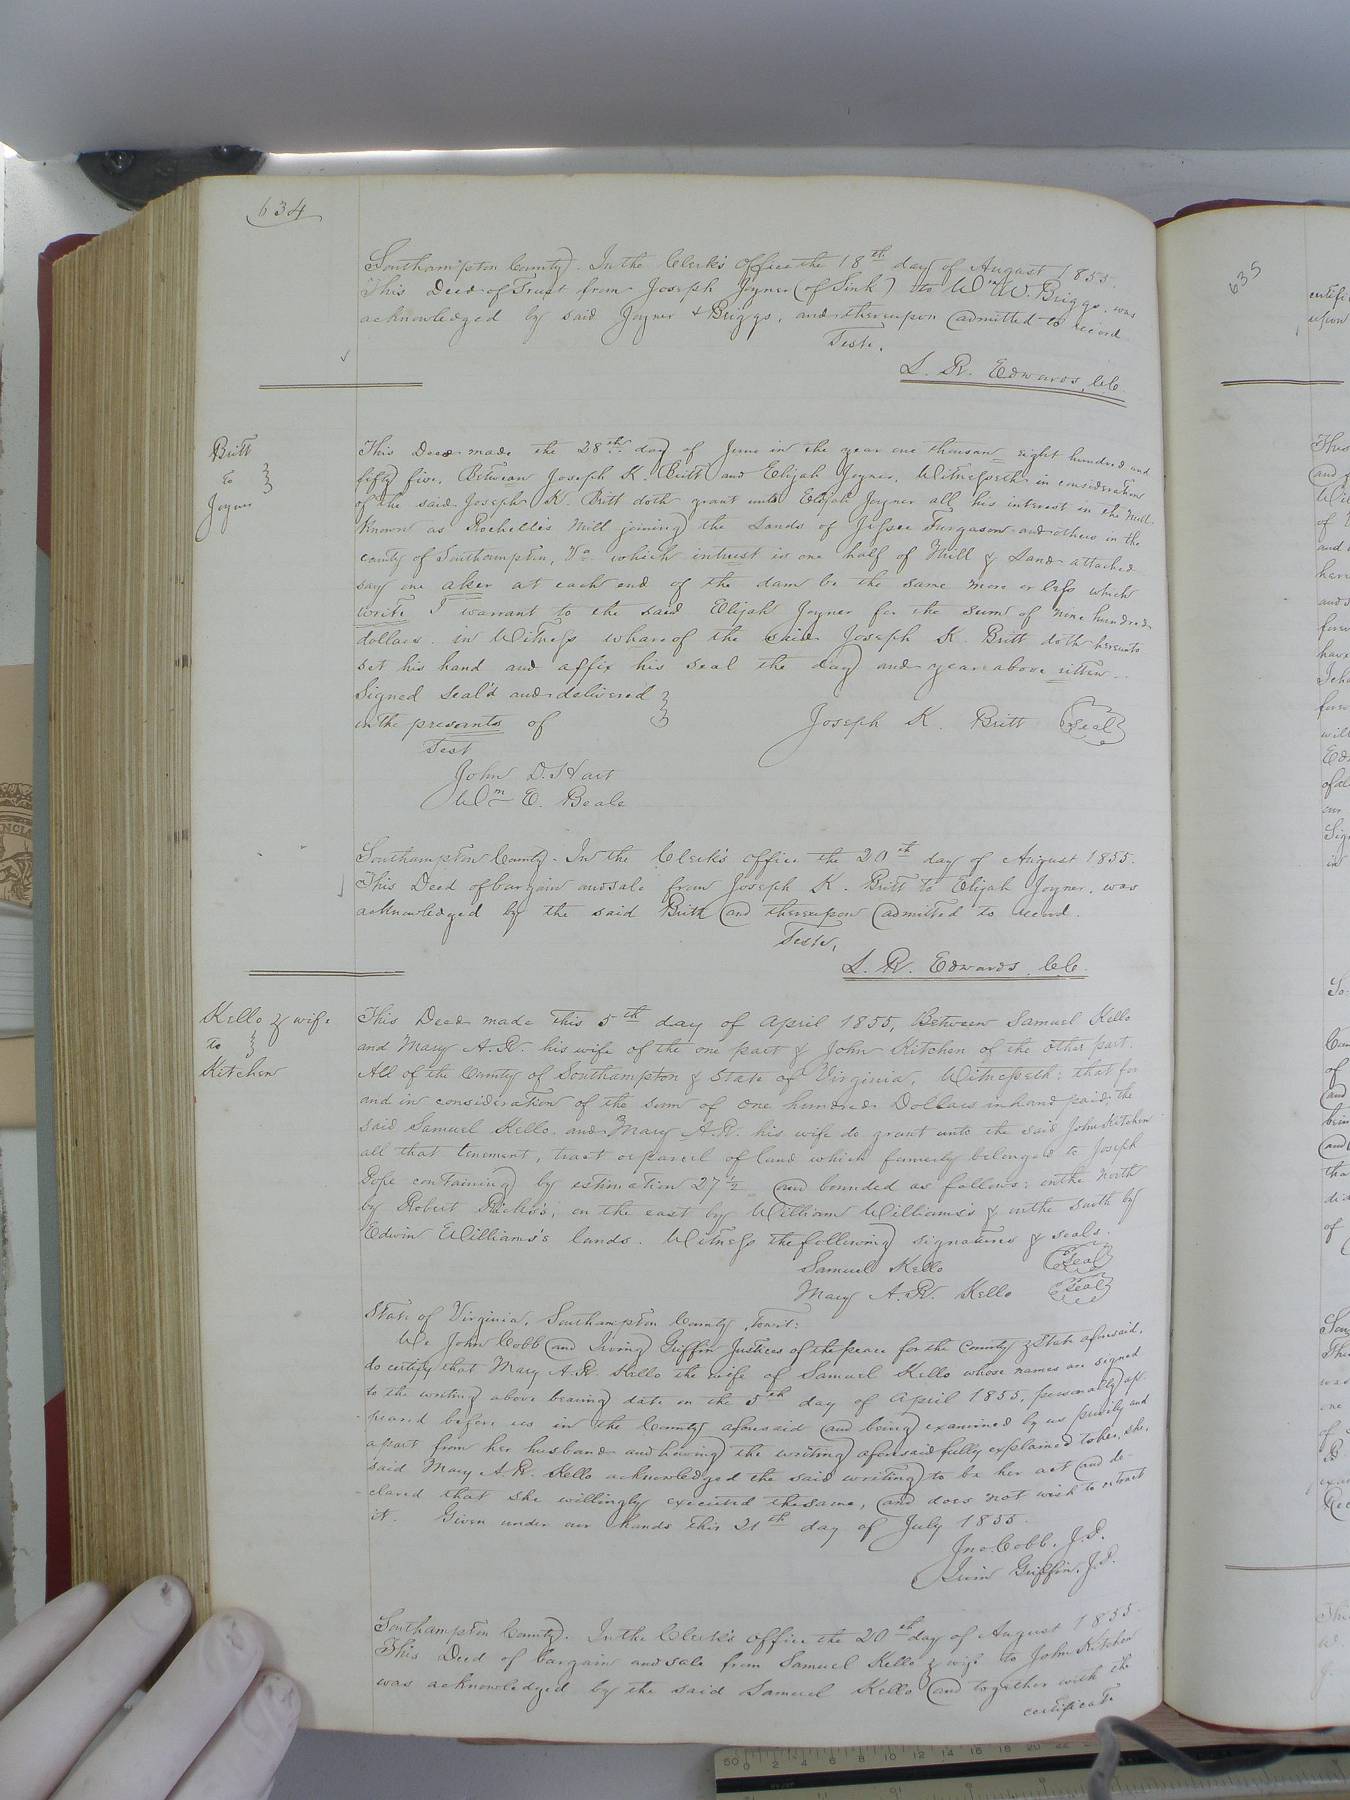 634
Southampton County. In the Clerk's Office the 18th day of August 1855.
This Deed of Trust from Joseph Joyner (of Sink) to Wm W. Briggs, was
acknowledged by said Joyner & Briggs, and thereupon admitted to record
Teste,
L. R. Edwards, C.C.
Britt
to
Joyner
This Deed made the 28th day of June in the year one thousan eight hundred and
fifty five, Between Joseph K. Britt and Elijah Joyner, Witnesseth in consideration
of the said Joseph K. Britt doth grant unto Elijah Joyner all his interest in the Mill
known as Rochelle's Mill joining the Lands of Jessee Furgason and others in the
county of Southampton, Va which intrest is one half of Mill & Land attached
say one aker at each end of the dam be the same more or less which
write I warrant to the said Elijah Joyner for the sum of nine hundred
dollars. in Witness whareof the said Joseph K. Britt doth hereunto
set his hand and affix his seal the day and year above ritten.
Signed seal'd and delivered
in the presants of
Joseph K. Britt Seal
Test
John D. Hart
Wm E. Beale
Southampton County. In the Clerk's Office the 20th day of August 1855.
This Deed of bargain and sale from Joseph K. Britt to Elijah Joyner, was
acknowledged by the said Britt and thereupon admitted to record.
Teste,
L. R. Edwards, C.C.
Kello & wife
to
Kitchen
This Deed made this 5th day of April 1855, Between Samuel Kello
and Mary A. R. his wife of the one part & John Kitchen of the other part.
All of the County of Southampton & State of Virginia, Witnesseth: that for
and in consideration of the sum of one hundred Dollars in hand paid the
said Samuel Kello and Mary A. R. his wife do grant unto the said John Kitchen
all that tenement, tract or parcel of land which formerly belonged to Joseph
Pope containing by estimation 27 1/2 and bounded as follows: on the north
by Robert Ricks's, on the east by William Williams's & on the South by
Edwin Williams's lands. Witness the following signatures & seals.
Samuel Kello Seal
Mary A. R. Kello Seal
State of Virginia, Southampton County, towit:
We John Cobb and Irving Griffin Justices of the peace for the County & State aforesaid,
do certify that Mary A. R. Kello the wife of Samuel Kello whose names are signed
to the writing above bearing date on the 5th day of April 1855, personally ap-
peared before us in the County aforesaid and being examined by us privily and
apart from her husband and having the writing aforesaid fully explained to her, she,
said Mary A. R. Kello acknowledged the said writing to be her act and de-
clared that she willingly executed the same, and does not wish to retract
it. Given under our hands this 21st day of July 1855.
Jno Cobb, J.P.
Irvin Griffin, J.P.
Southampton County. In the Clerk's Office the 20th day of August 1855.
This Deed of bargain and sale from Samuel Kello & wife to John Kitchen
was acknowledged by the said Samuel Kello and together with the
certificate
635